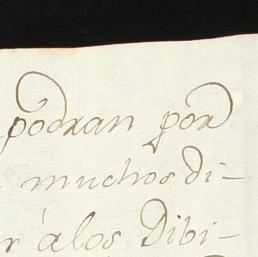 pódran por
muchos di-
r álos Dibi-